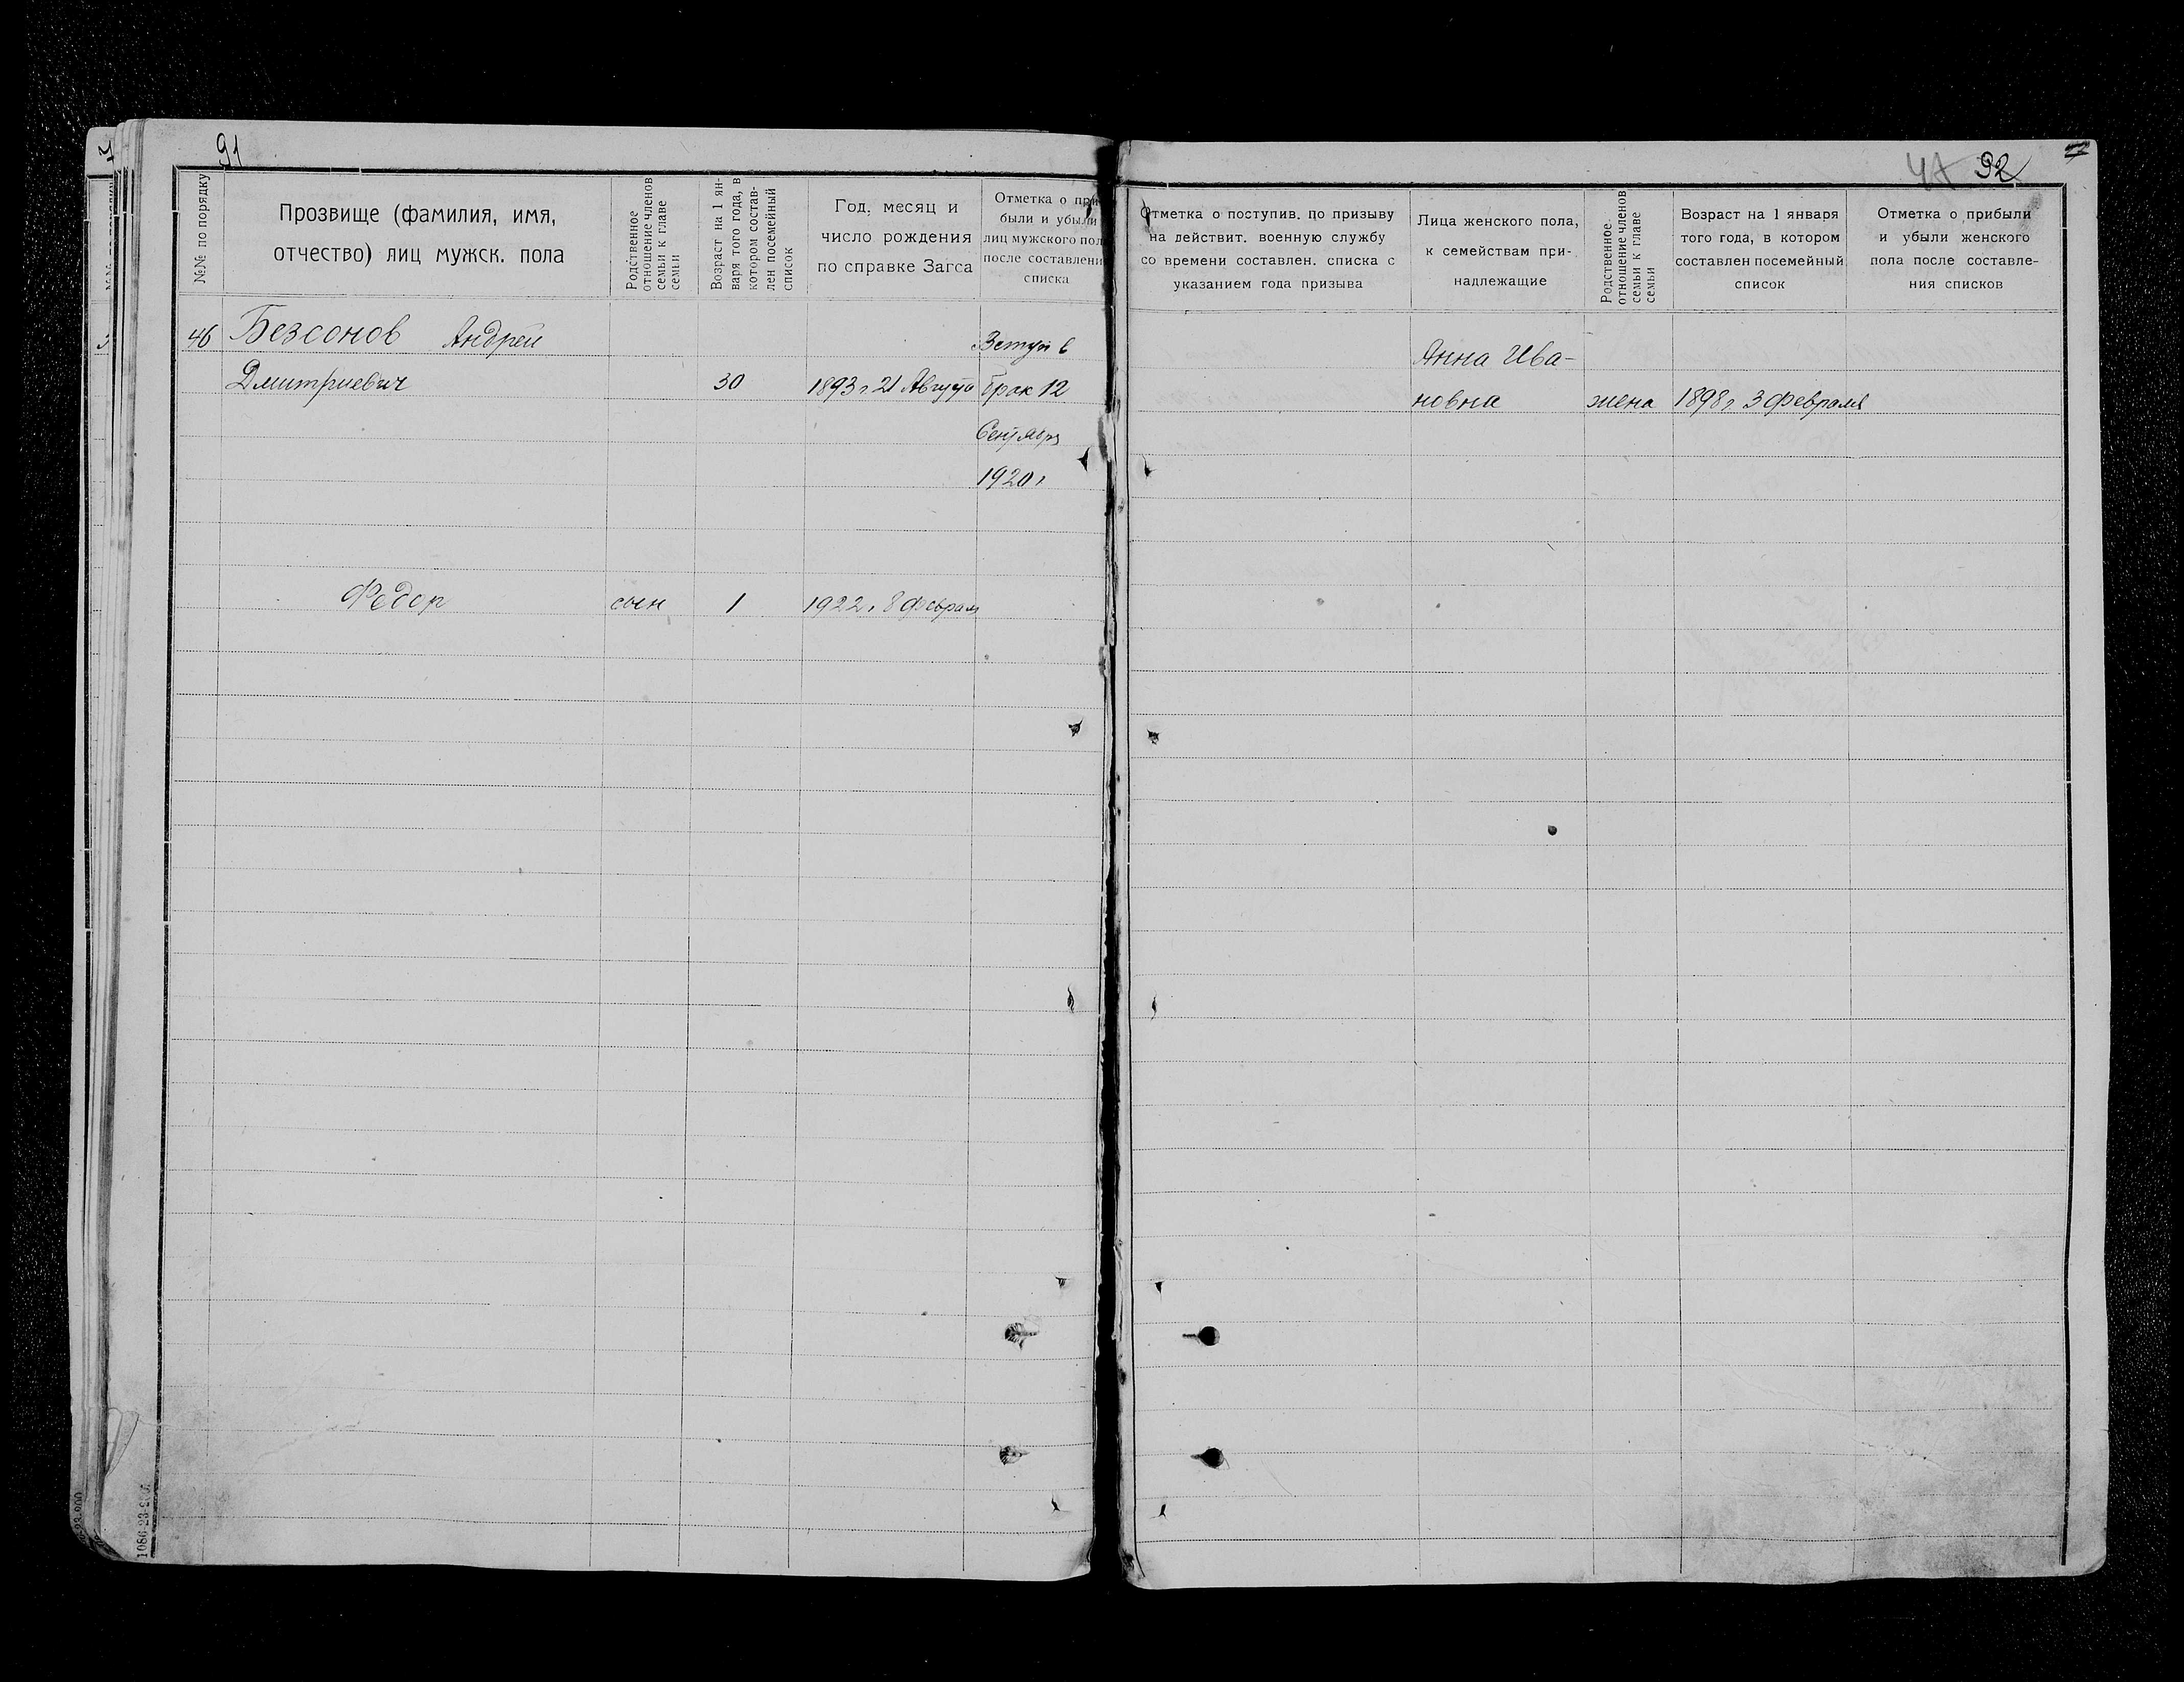 91
№№ по порядку
Прозвище (фамилия, имя,
отчество) лиц мужск. пола
Родственное
отношение членов
семьи к главе
семьи
Возраст на 1 ян-
варя того года, в
котором состав-
лен посемейный
список
Год, месяц и
число рождения
по справке Загса
Отметка о при
были и убыли
лиц мужского пол
после составлени
списка
46 Безсонов Андрей
Дмитриевич 30 1893 г. 21 Августа
Вступ в
брак 12
Сентября
1920 г
Федор сын 1 1922 г 8 февраля
1086-23-900
92
Отметка о поступив. по призыву
на действит. военную службу
со времени составлен. списка с
указанием года призыва
Лица женского пола,
к семействам при-
надлежащие
Родственное
отношение членов
семьи к главе
семьи
Возраст на 1 января
того года, в котором
составлен посемейный
список
Отметка о прибыли
и убыли женского
пола после составле-
ния списков
Анна Ива-
новна жена 1898 г. 3 февраля